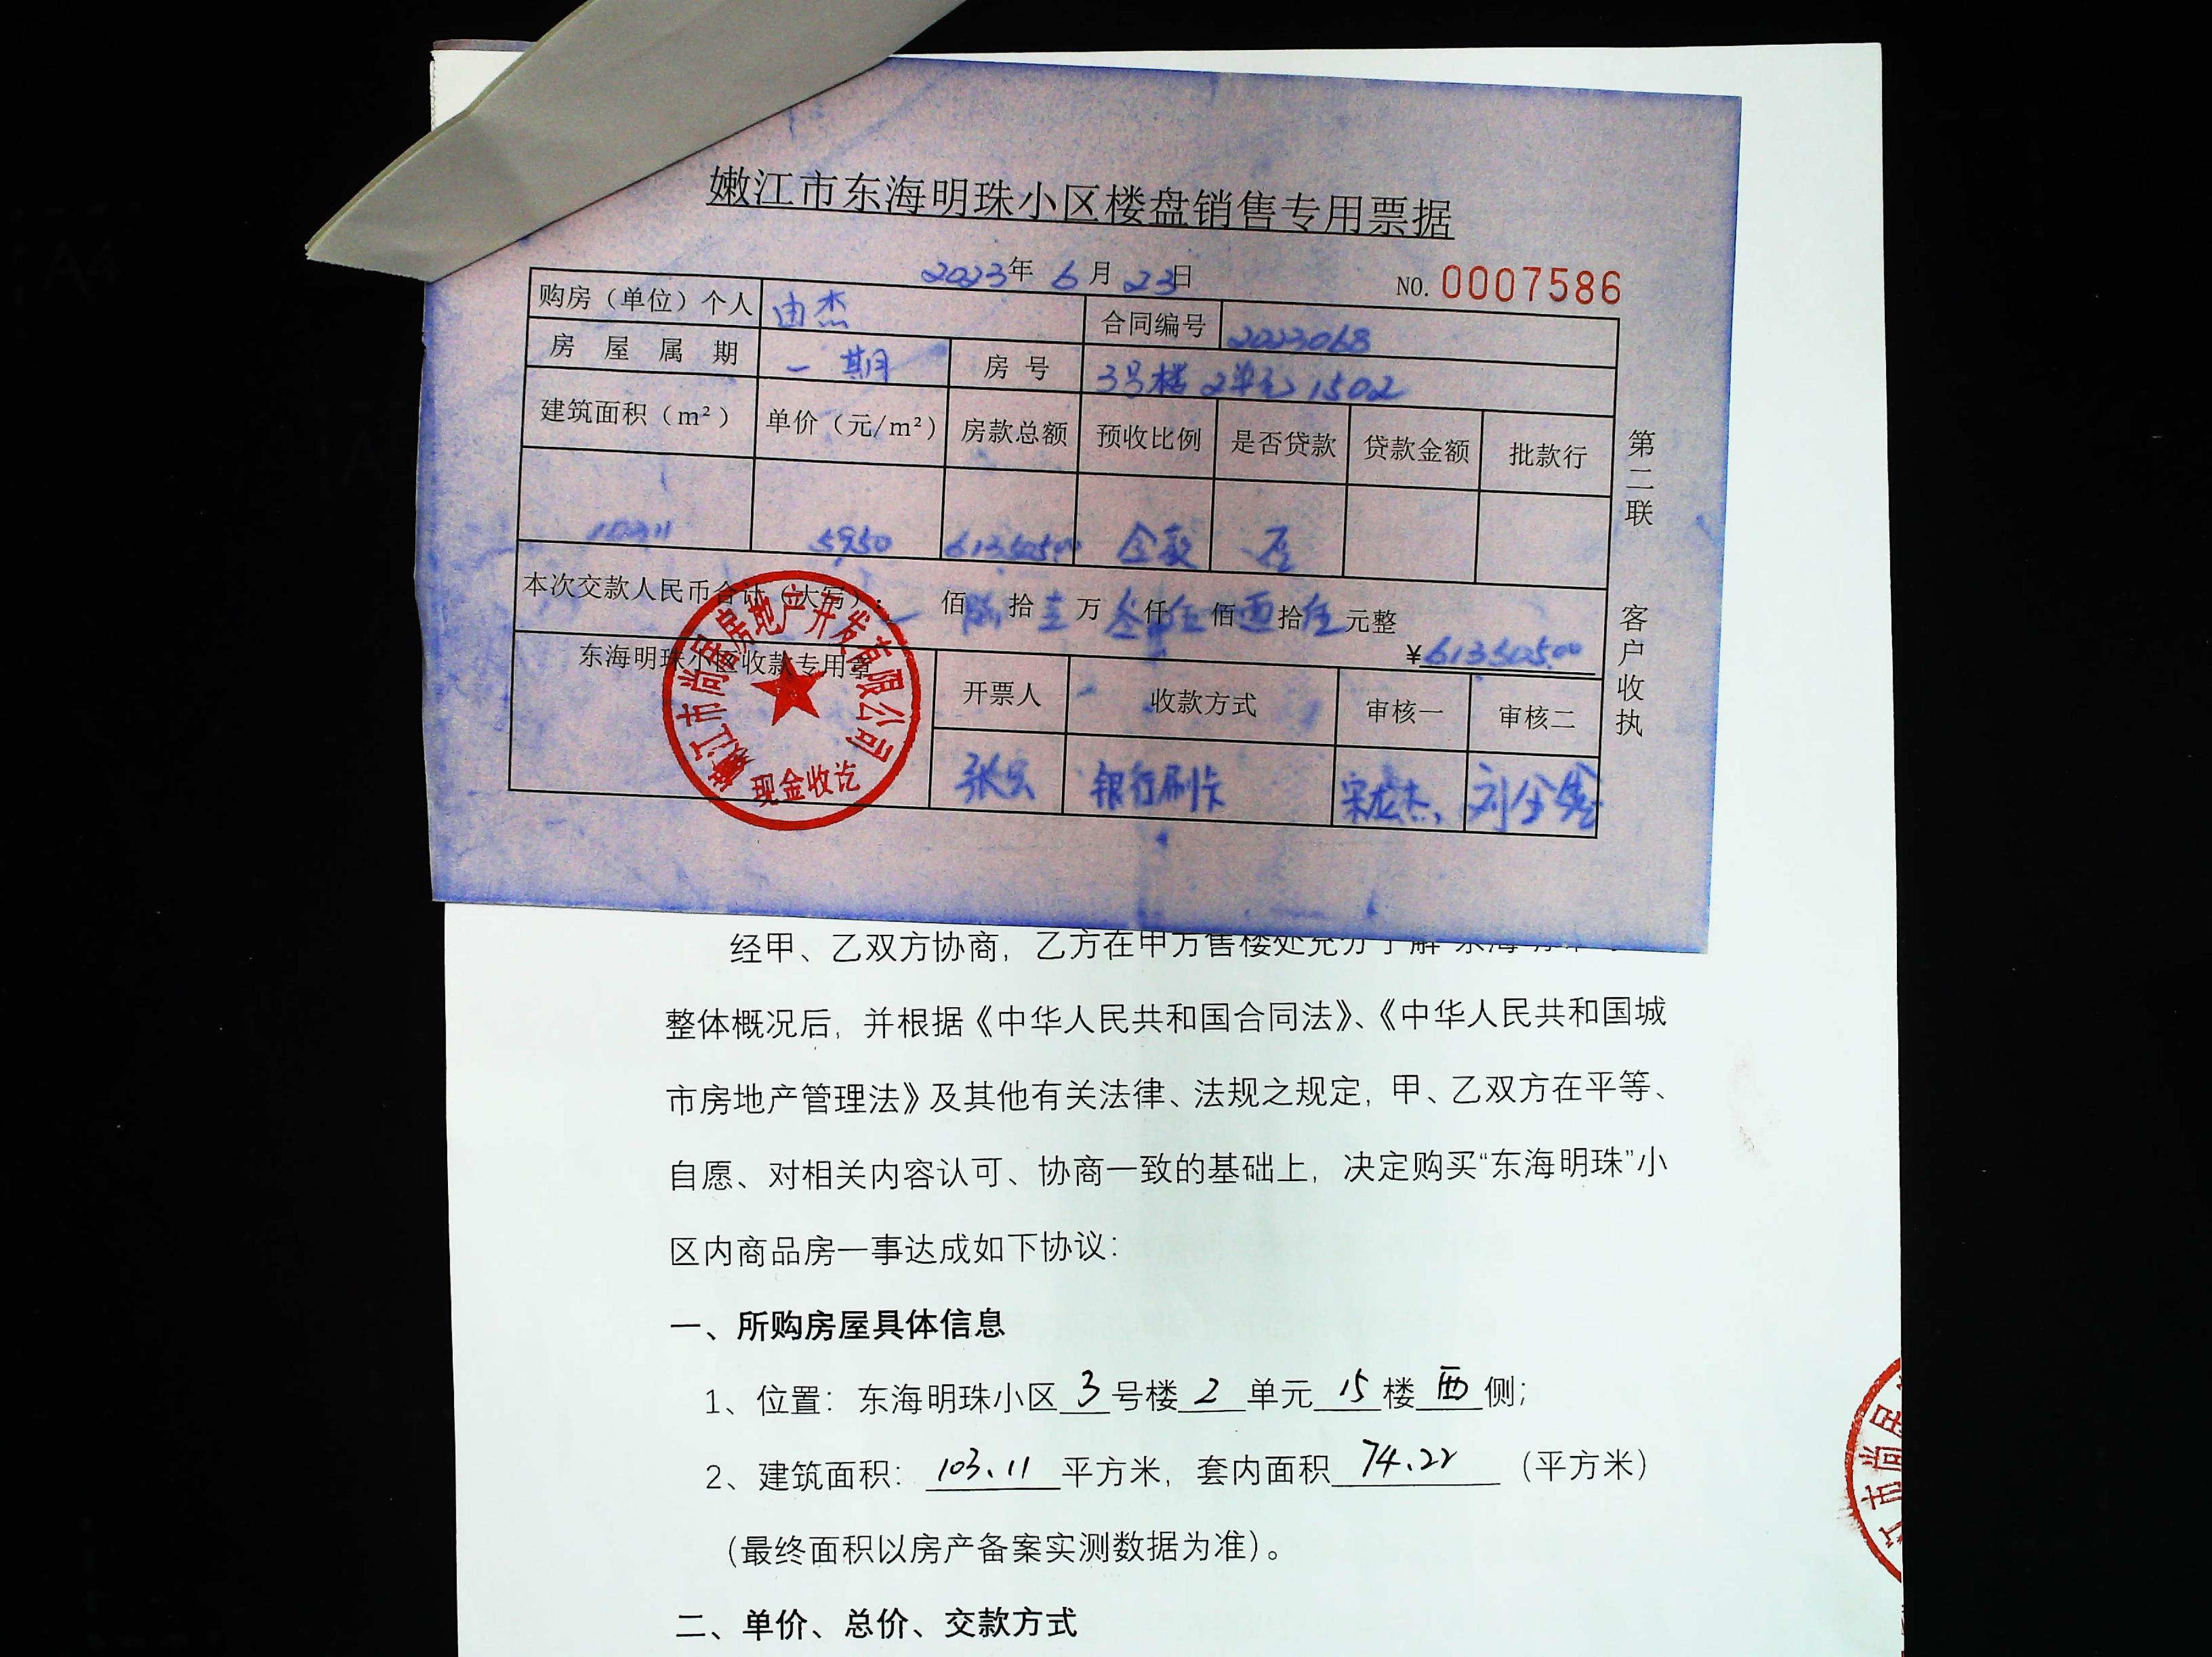 嫩江市东海明珠小区楼盘销售专用票据
2023年 6月 23日 NO. 0007586
购房（单位）个人 由杰 合同编号 2023068
房屋属期 一期 房号 3号楼2单元1502
建筑面积（m²） 单价（元/m²） 房款总额 预收比例 是否贷款 贷款金额 批款行
5950 全款 否
本次交款人民币合计（大写）： 佰陆拾壹万叁仟伍佰 拾伍元整
¥
东海明珠小区收款专用章 开票人 收款方式 审核一 审核二
银行刷卡
嫩江市尚居房地产开发有限公司
现金收讫
第二联
客户收执
经甲、乙双方协商，乙方在甲方售楼处充分了解
整体概况后，并根据《中华人民共和国合同法》、《中华人民共和国城
市房地产管理法》及其他有关法律、法规之规定，甲、乙双方在平等、
自愿、对相关内容认可、协商一致的基础上，决定购买“东海明珠”小
区内商品房一事达成如下协议：
一、所购房屋具体信息
1、位置：东海明珠小区3号楼2单元15楼西侧；
2、建筑面积：103.11平方米，套内面积74.22（平方米）
（最终面积以房产备案实测数据为准）。
二、单价、总价、交款方式